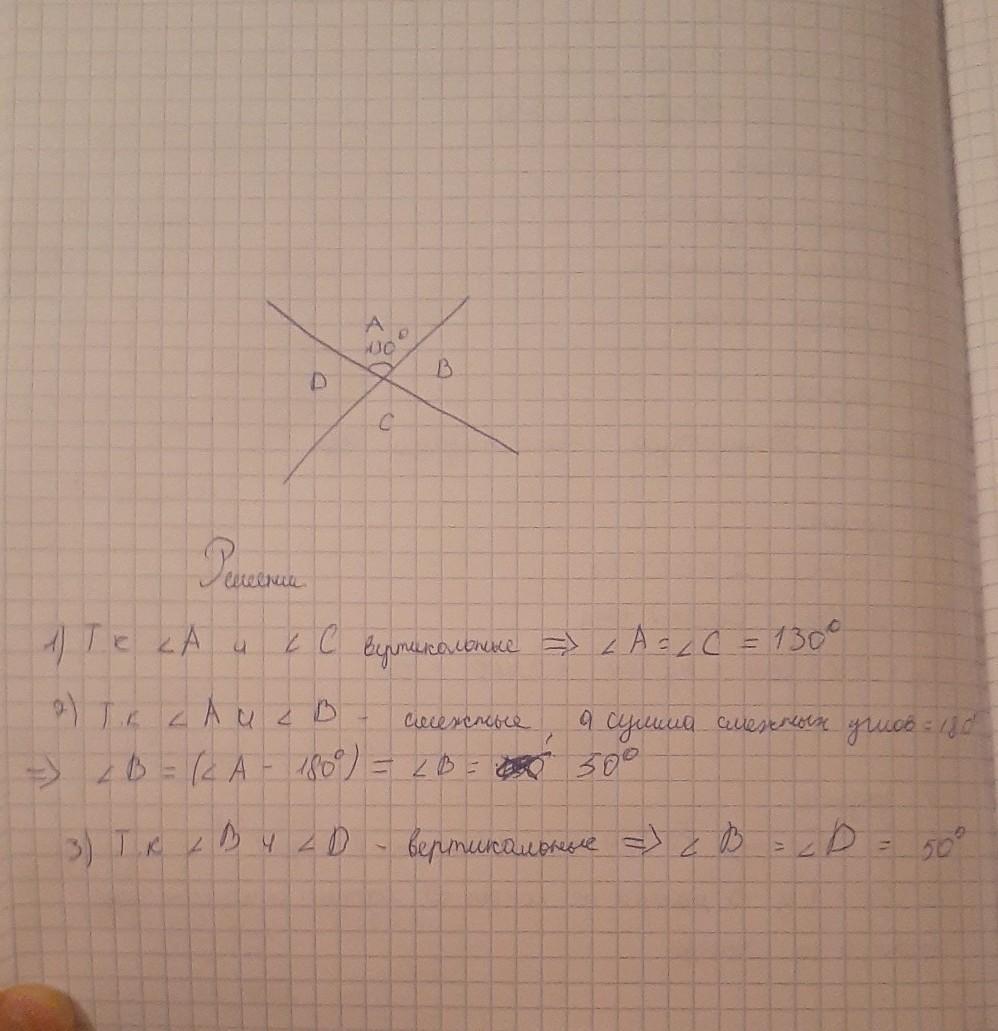 A
130°
D
B
C
Решение
1) Т к ∠A и ∠C вертикальные => ∠A = ∠C = 130°
2) Т.к ∠A и ∠B - смежные, а сумма смежных углов = 180°
=> ∠B = (∠A - 180°) = ∠B = 50°
3) Т.к ∠B и ∠D - вертикальные => ∠B = ∠D = 50°